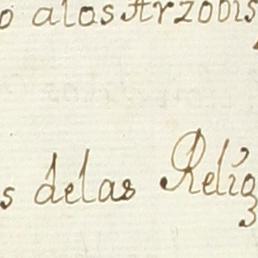 o alos Arzobis
s delas Relig